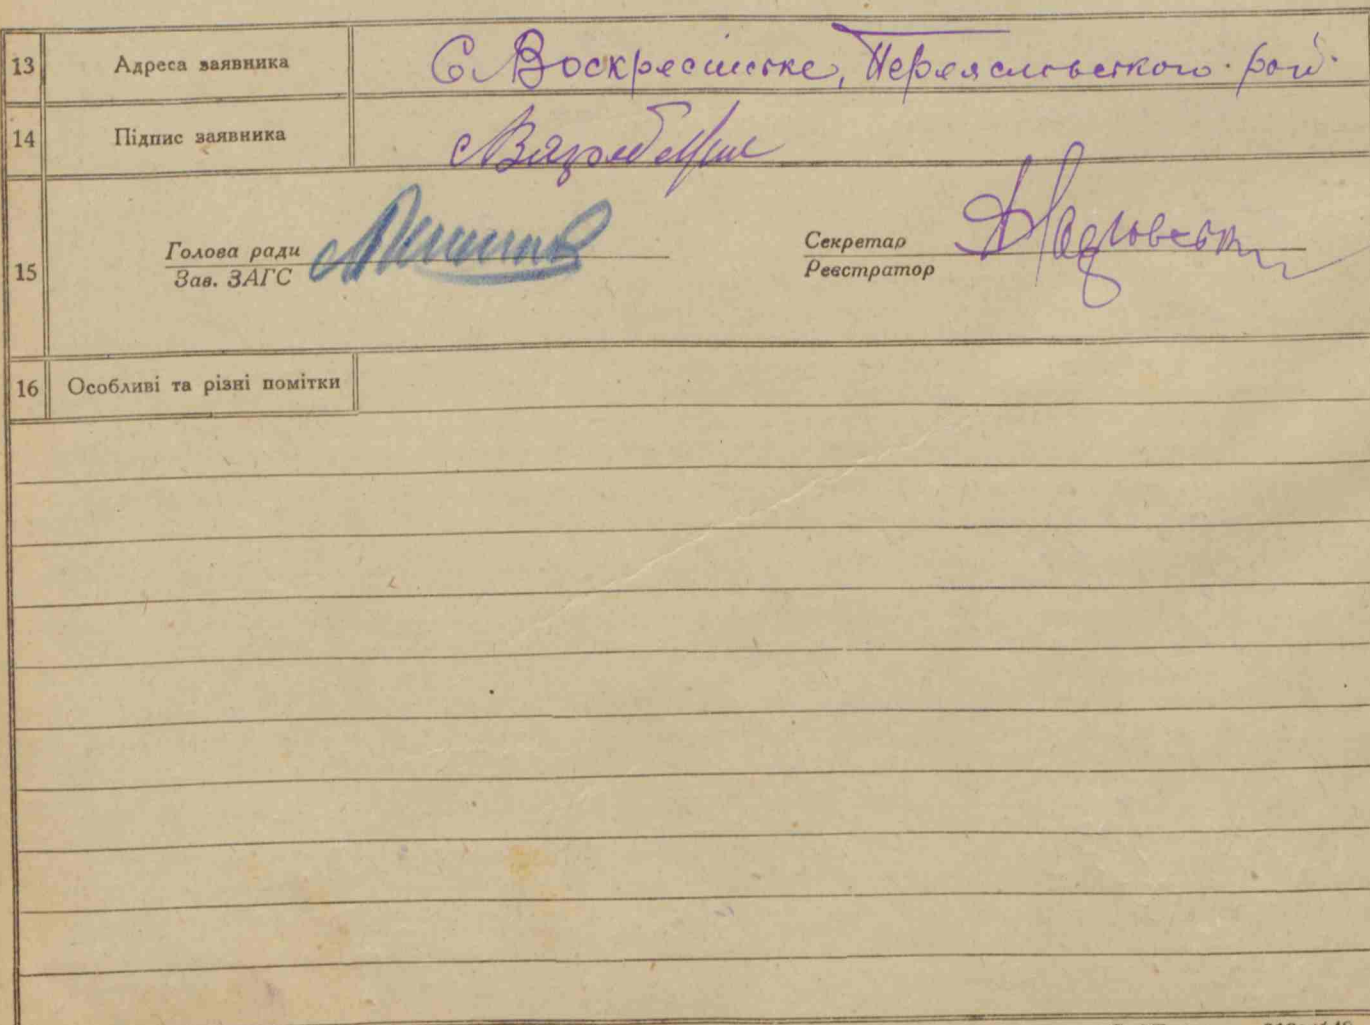 13 Адреса заявника С. Воскресінське, Переяславського рай.
14 Підпис заявника
15 Голова ради Секретар
Зав. ЗАГС Реєстратор
16 Особливі та різні помітки